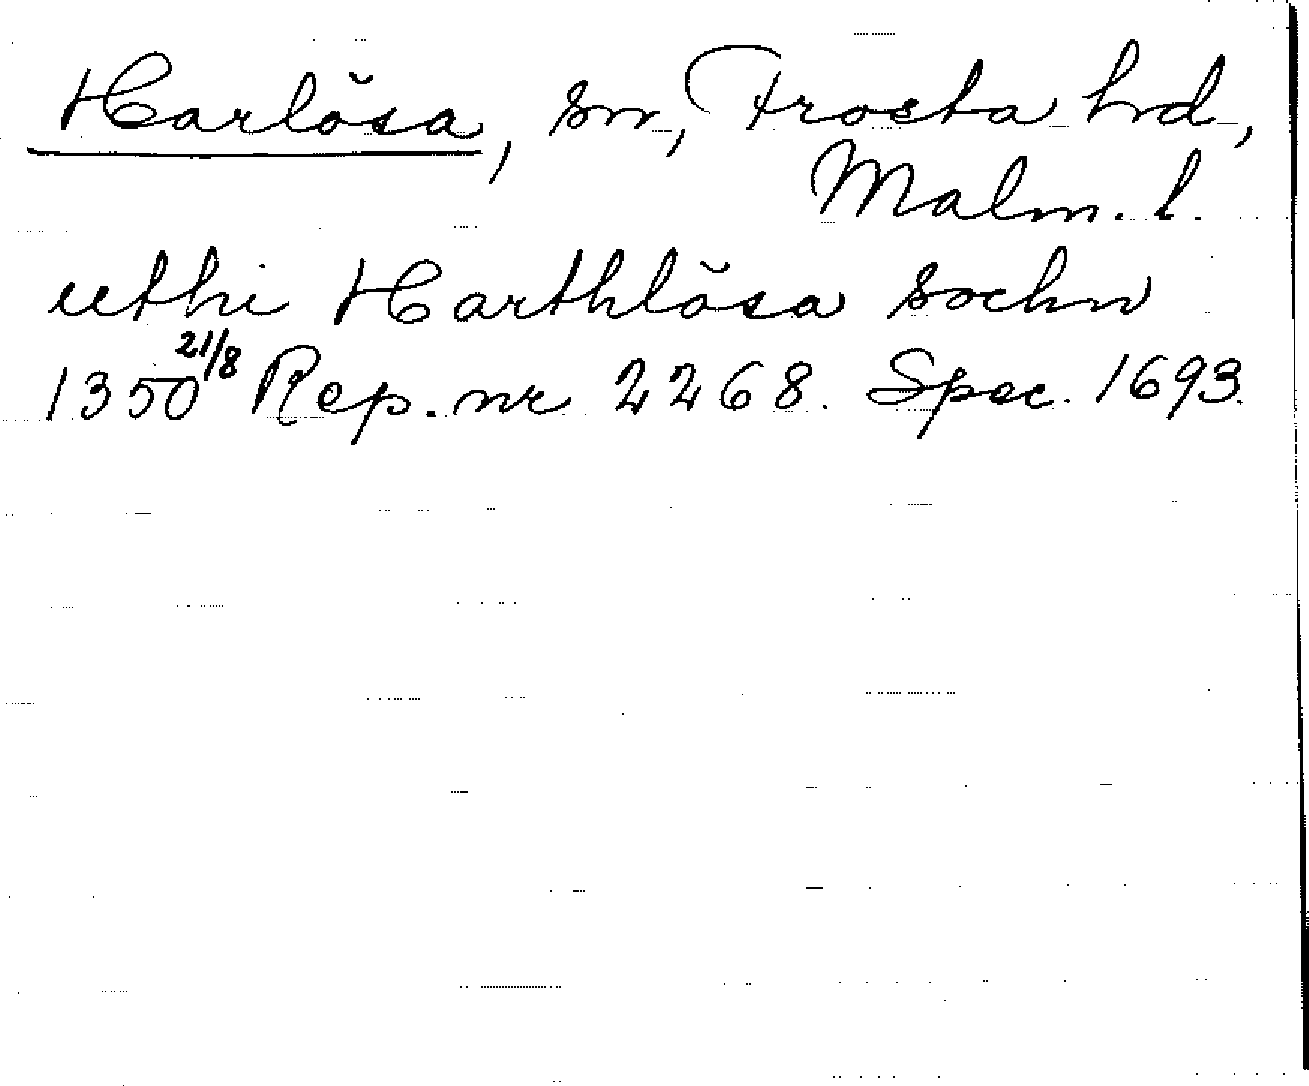 Harlösa, sn, Frosta hrd,
Malm. l.
uthi Harthlösa sochn
1350 21/8 Rep. nr 2268. Spec. 1693.